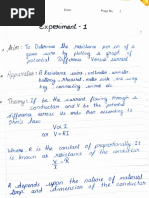 Date
Page No. 1
Experiment - 1
Aim :- To Determine the resistance per cm of a
given wire by plotting a graph of
potential Difference Versus current.
Apparatus :- A Resistance wire, voltmeter, ammeter,
battery, rheostat, metre scale,
key, connecting wires etc.
Theory :- If I be the current flowing through
conductor and V be the potential
difference across its ends then according
to ohm's law
V α I
or V = RI
Where, R is the constant of proportionality. It
is known as resistance of the conductor
R depends upon the nature of material,
temp. and dimension of the conductor